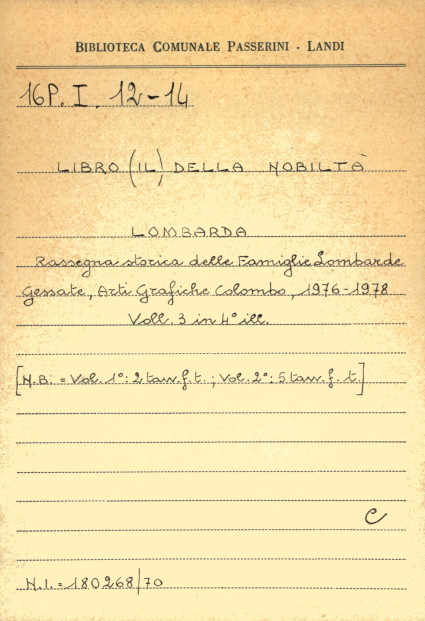 BIBLIOTECA COMUNALE PASSERINI - LANDI
16P. I. 12-14
LIBRO (IL) DELLA NOBILTÀ
LOMBARDA
Rassegna storica delle Famiglie Lombarde
Gessate, Arti Grafiche Colombo, 1976-1978
Voll. 3 in 4° ill.
[N.B. = Vol. 1°: 2 tav. f. t. ; Vol. 2°: 5 tav. f. t.]
C
N.I. = 180268/70